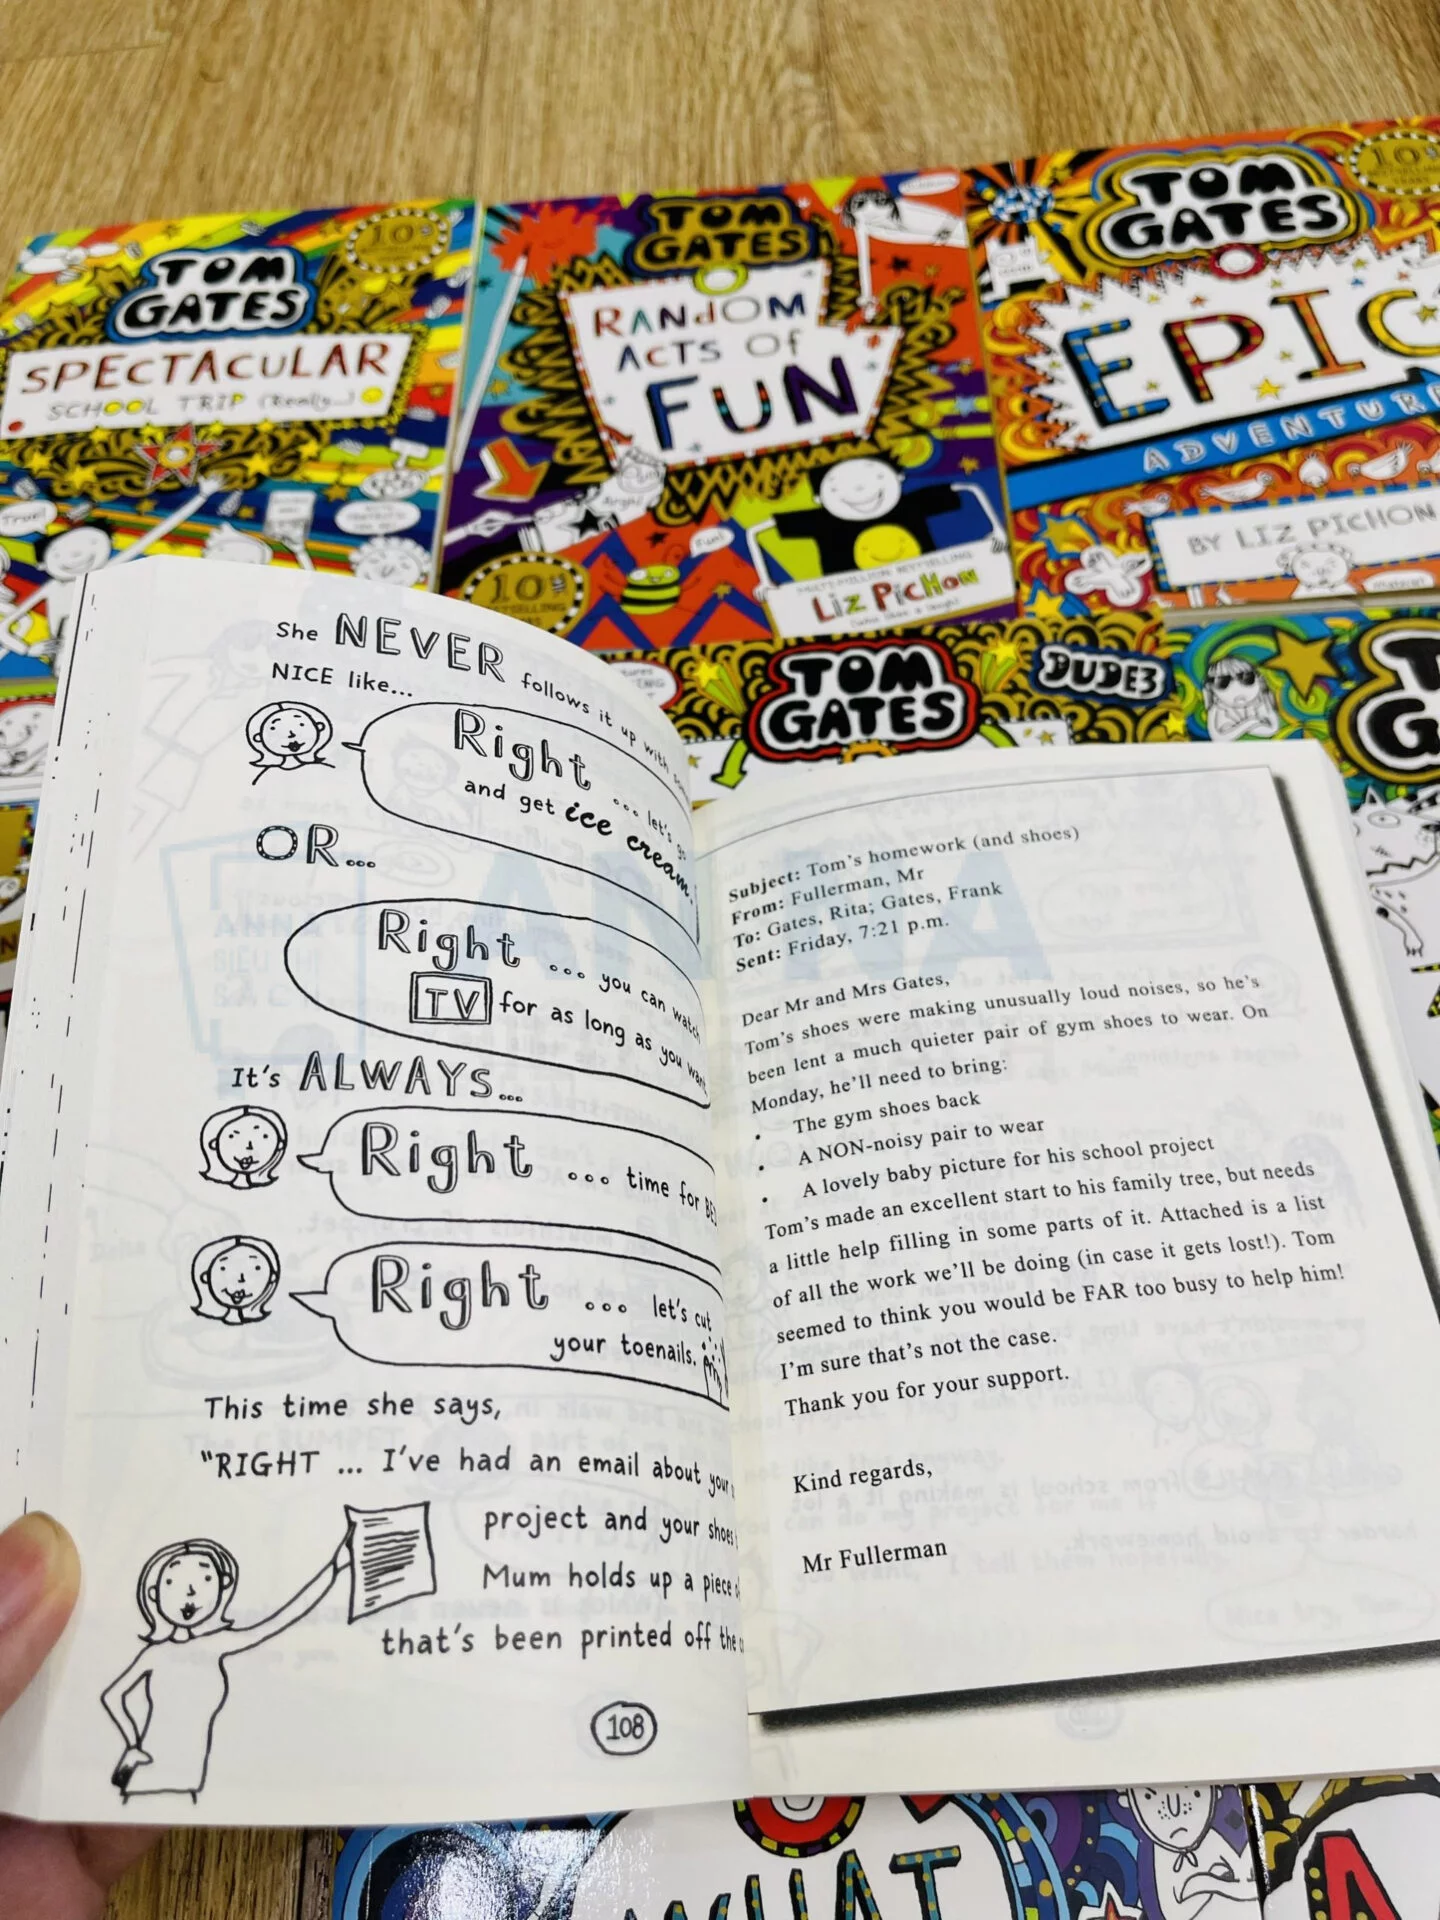 10
TOM
GATES
SPECTACULAR
SCHOOL TRIP (Really...)
TOM
GATES
RANDOM
ACTS OF
FUN
Fun!
10
LIZ PICHON
TOM
GATES
10
EPIC
ADVENTURE
BY LIZ PICHON
TOM
GATES
DUDE3
She NEVER follows it up with
NICE like...
Right ... let's go
and get ice cream.
OR...
Right ... you can watch
TV for as long as you want
It's ALWAYS...
Right ... time for BED
Right ... let's cut
your toenails.
This time she says,
"RIGHT ... I've had an email about your
project and your shoes
Mum holds up a piece
that's been printed off the
108
Subject: Tom's homework (and shoes)
From: Fullerman, Mr
To: Gates, Rita; Gates, Frank
Sent: Friday, 7:21 p.m.
Dear Mr and Mrs Gates,
Tom's shoes were making unusually loud noises, so he's
been lent a much quieter pair of gym shoes to wear. On
Monday, he'll need to bring:
• The gym shoes back
• A NON-noisy pair to wear
• A lovely baby picture for his school project
Tom's made an excellent start to his family tree, but needs
a little help filling in some parts of it. Attached is a list
of all the work we'll be doing (in case it gets lost!). Tom
seemed to think you would be FAR too busy to help him!
I'm sure that's not the case.
Thank you for your support.
Kind regards,
Mr Fullerman
ANNA
WHAT